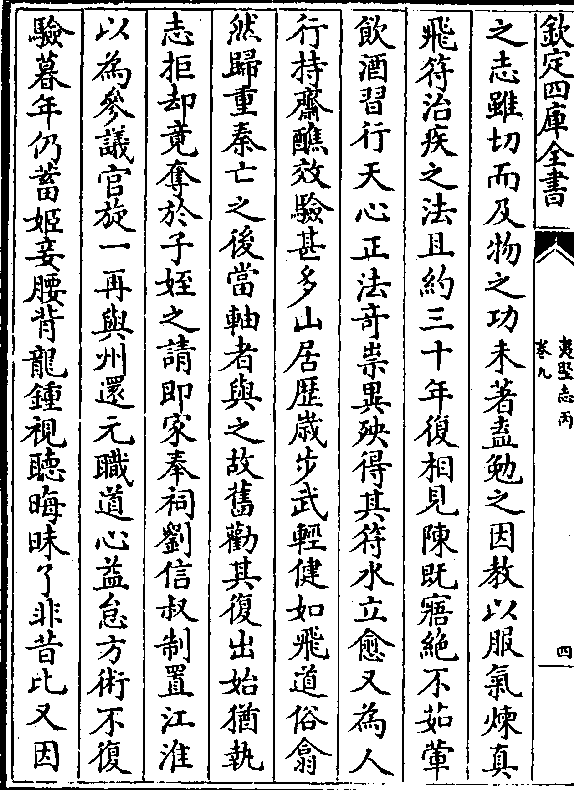 欽定四庫全書
夷堅志丙
卷九
四
之志雖切而及物之功未著盍勉之因教以服氣煉真
飛符治疾之法且約三十年復相見陳既寤絶不茹葷
飲酒習行天心正法竒祟異殃得其符水立愈又為人
行持齋醮效驗甚多山居歴歳步武輕健如飛道俗翕
然歸重秦亡之後當軸者與之故舊勸其復出始猶執
志拒却竟奪於子姪之請即家奉祠劉信叔制置江淮
以為參議官旋一再與州還元職道心益怠方術不復
驗暮年仍蓄姬妾腰背龍鍾視聽晦昧了非昔比又因